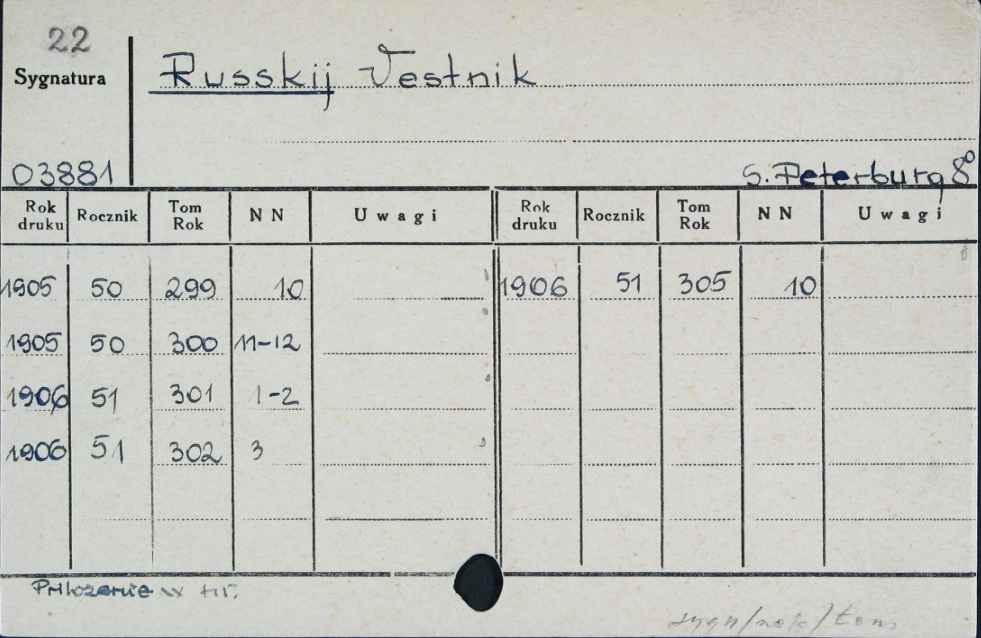 22
Sygnatura
Russkij Vestnik
03881
S. Peterburg 8°
Rok druku Rocznik Tom Rok NN Uwagi Rok druku Rocznik Tom Rok NN Uwagi
1905 50 299 10 1906 51 305 10
1905 50 300 11-12
1906 51 301 1-2
1906 51 302 3
sygn/rok/tom